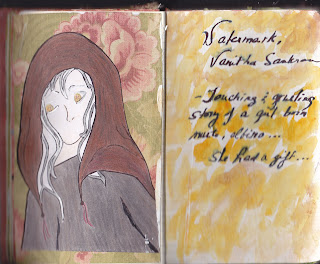 Watermark,
Vanitha Sankaran
- Touching & gripping
story of a girl born
mute, albino...
She had a gift...